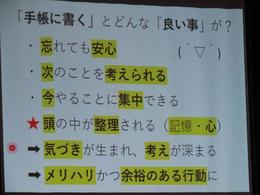 「手帳に書く」とどんな「良い事」が?
・忘れても安心 (´▽`)
・次のことを考えられる
・今やることに集中できる
★頭の中が整理される(記憶・心)
➡気づきが生まれ、考えが深まる
➡メリハリかつ余裕のある行動に